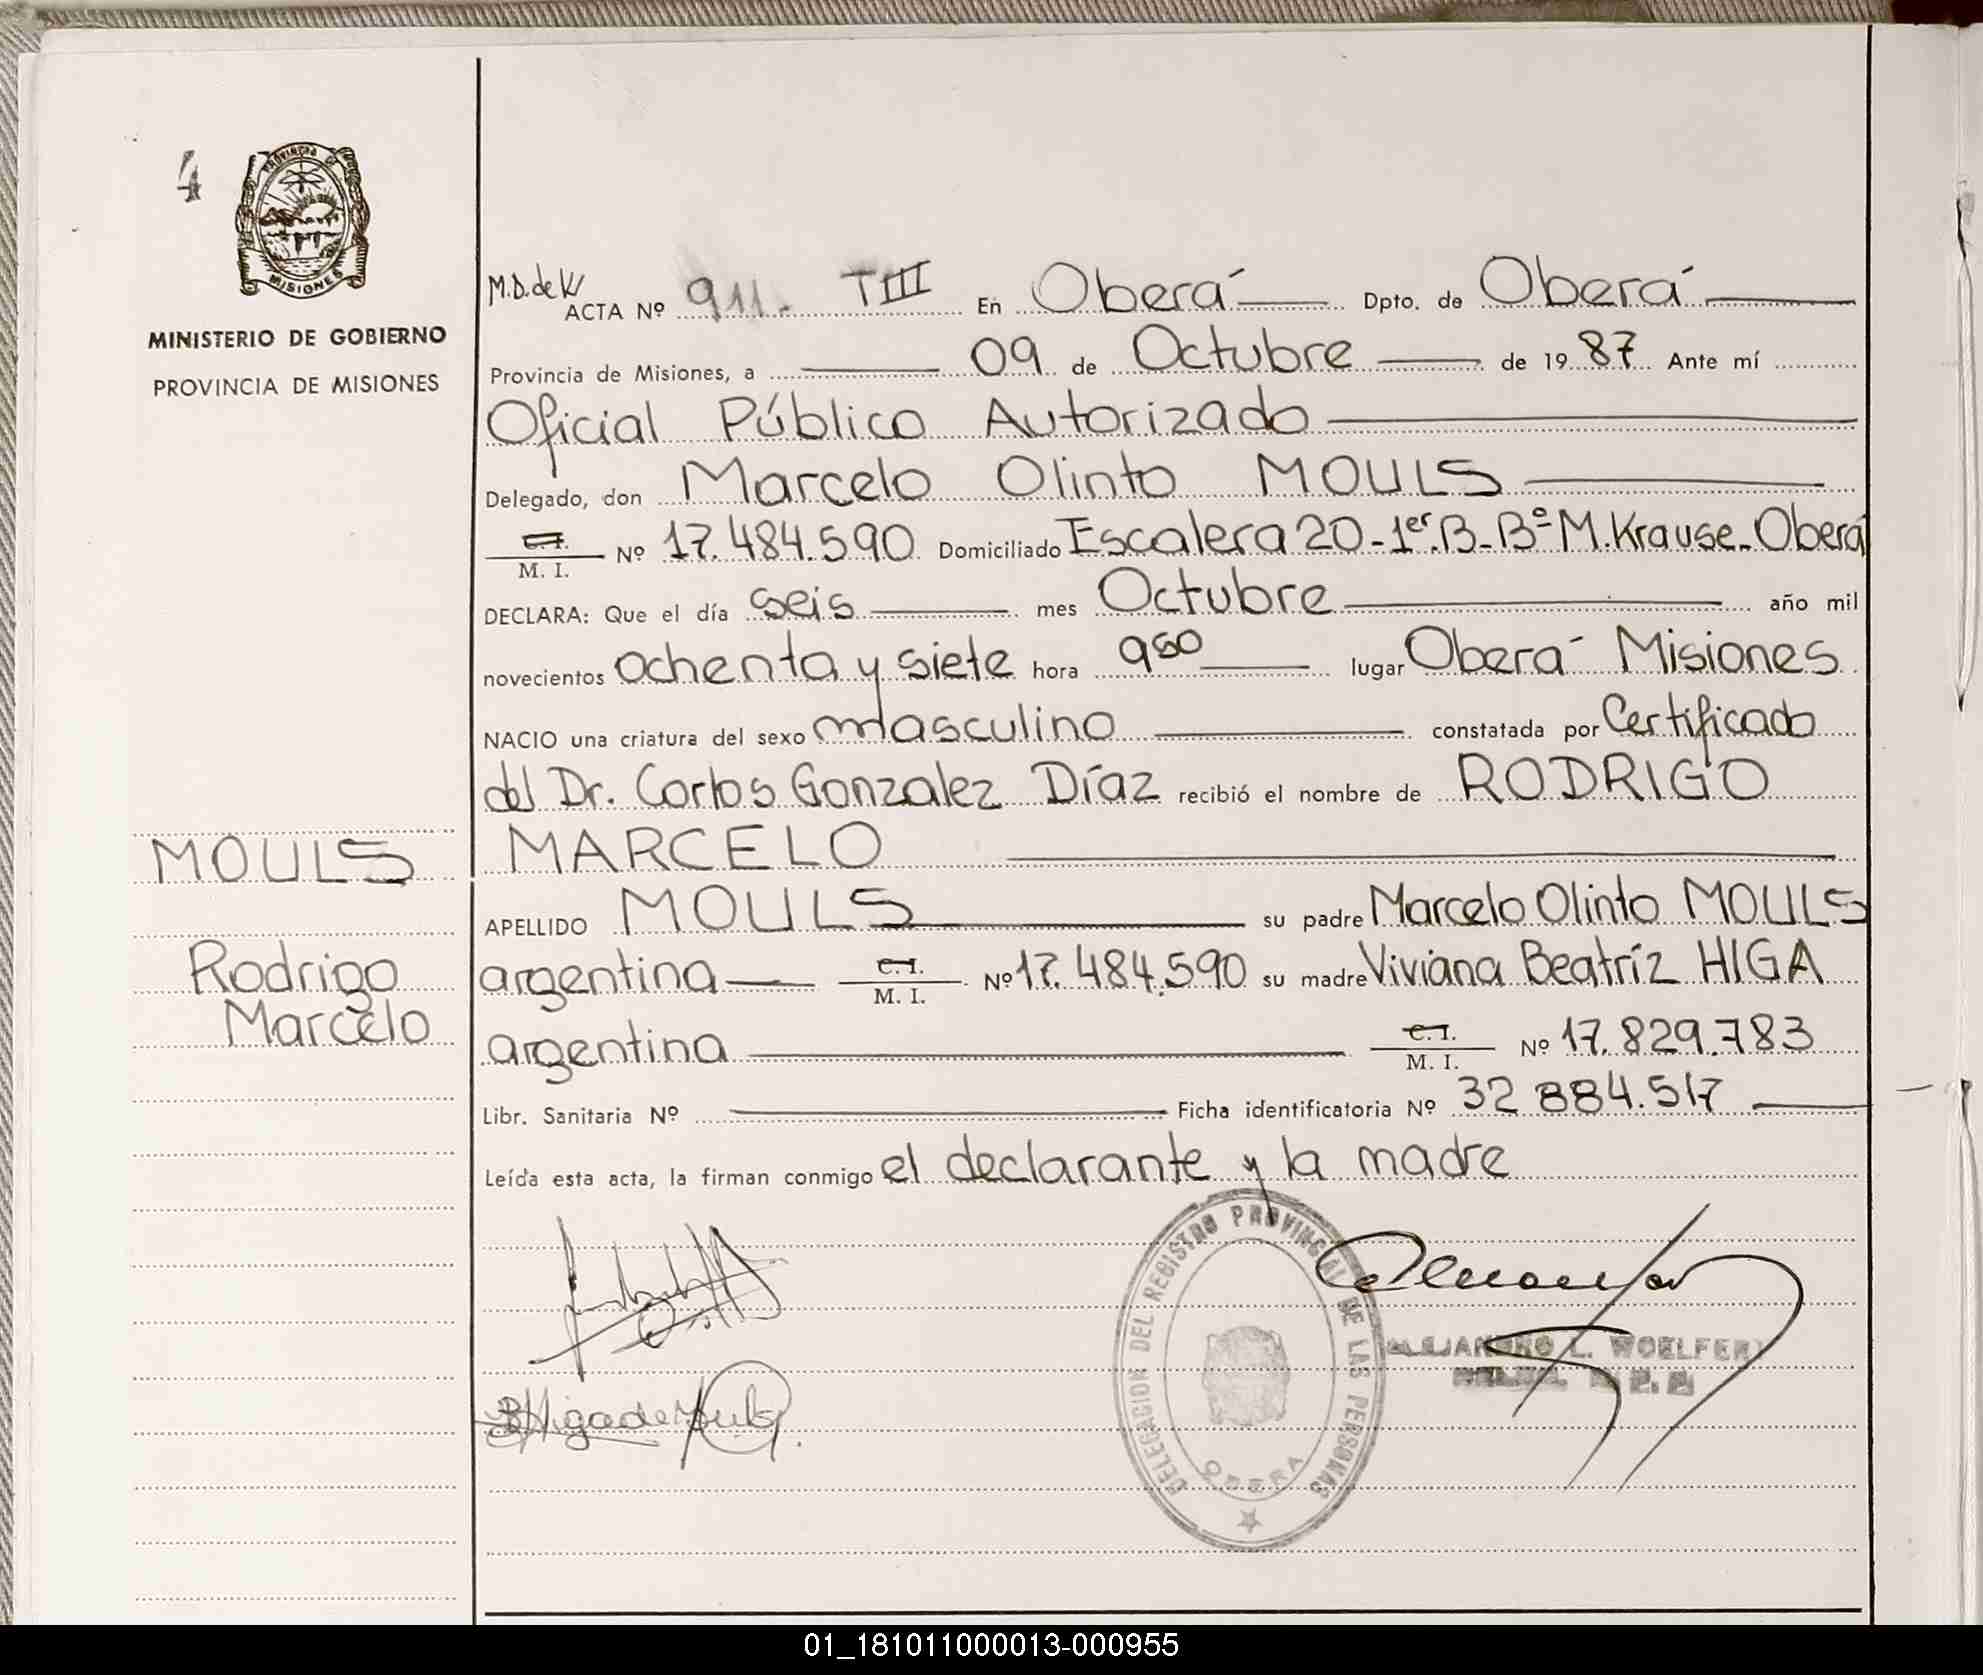 4
PROVINCIA DE
MISIONES
MINISTERIO DE GOBIERNO
PROVINCIA DE MISIONES
MOULS
Rodrigo
Marcelo
M.D. de W
ACTA Nº 911. TIII En Oberá Dpto. de Oberá
Provincia de Misiones, a 09 de Octubre de 1987 Ante mí
Oficial Público Autorizado
Delegado, don Marcelo Olinto MOULS
C.I.
M. I. Nº 17.484.590 Domiciliado Escalera 20-1er.B-Bº M.Krause-Oberá
DECLARA: Que el día seis mes Octubre año mil
novecientos ochenta y siete hora 9⁵⁰ lugar Oberá Misiones
NACIO una criatura del sexo masculino constatada por Certificado
del Dr. Carlos Gonzalez Díaz recibió el nombre de RODRIGO
MARCELO
APELLIDO MOULS su padre Marcelo Olinto MOULS
argentina C.I. M. I. Nº 17.484.590 su madre Viviana Beatríz HIGA
argentina C.I. M. I. Nº 17.829.783
Libr. Sanitaria Nº Ficha identificatoria Nº 32 884.517
Leída esta acta, la firman conmigo el declarante y la madre
DELEGACION DEL REGISTRO PROVINCIAL DE LAS PERSONAS
OBERA
ALEJANDRO L. WOELFERT
B Higa de Mouls
01_181011000013-000955